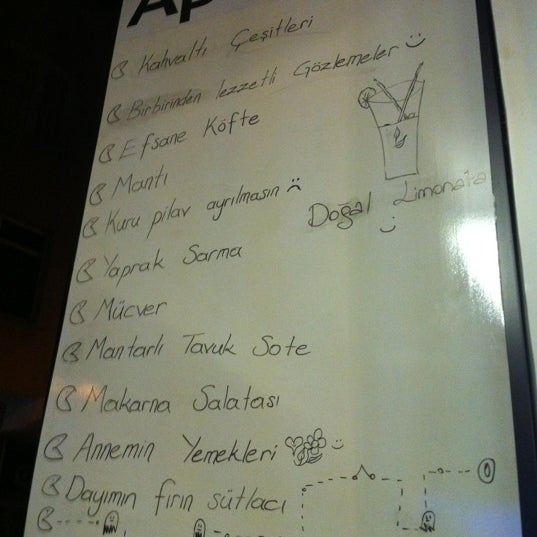 Ap
Kahvaltı Çeşitleri
Birbirinden lezzetli Gözlemeler
Efsane Köfte
Mantı
Kuru pilav ayrılmasın
Doğal Limonata
Yaprak Sarma
Mücver
Mantarlı Tavuk Sote
Makarna Salatası
Annemin Yemekleri
Dayımın fırın sütlacı